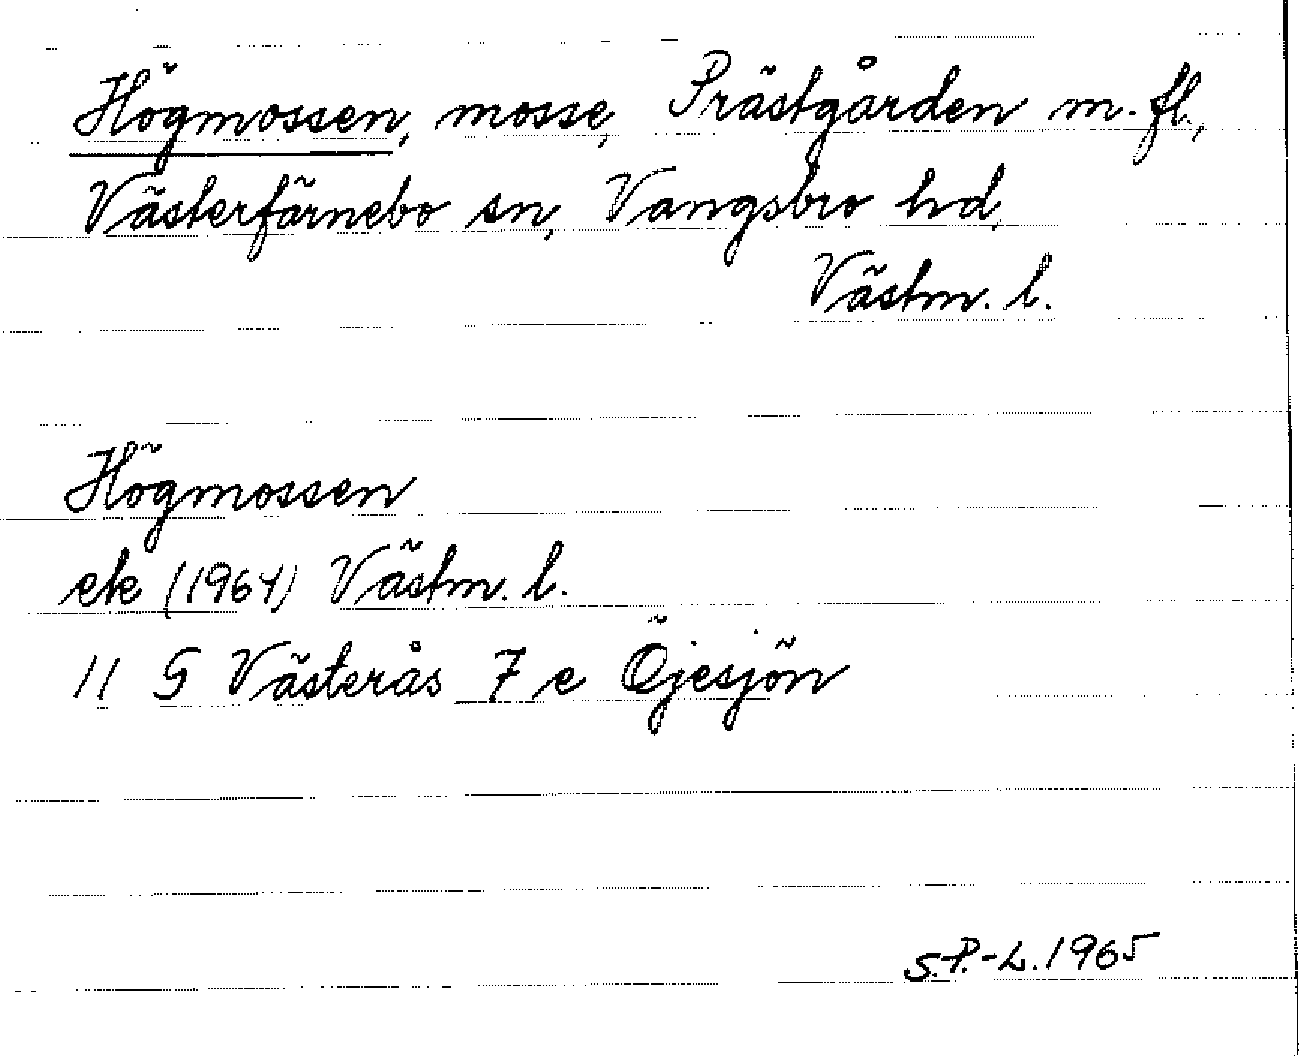 Högmossen, mosse, Prästgården m. fl.,
Västerfärnebo sn, Vangsbro hd,
Västm. l.
Högmossen
ek (1964) Västm. l.
11 G Västerås 7 e Öjesjön
S.P.-L. 1965